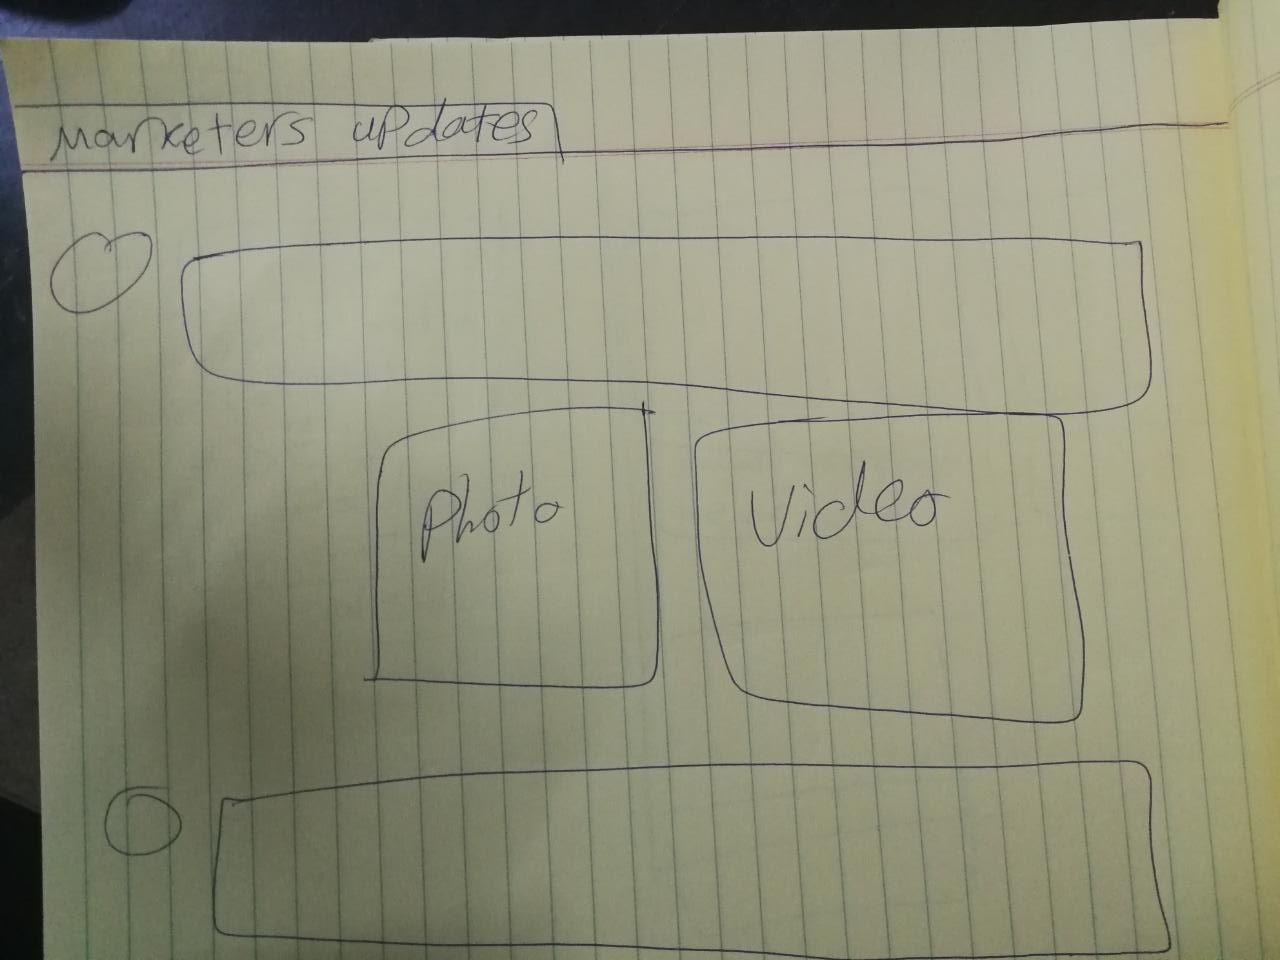 Marketers updates
Photo
Video